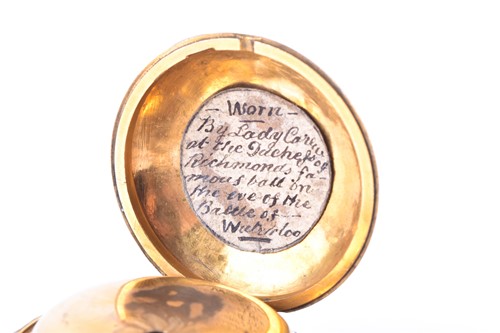 - Worn -
By Lady Carew
at the Duchess of
Richmonds fa-
mous ball on
the eve of the
Battle of -
Waterloo